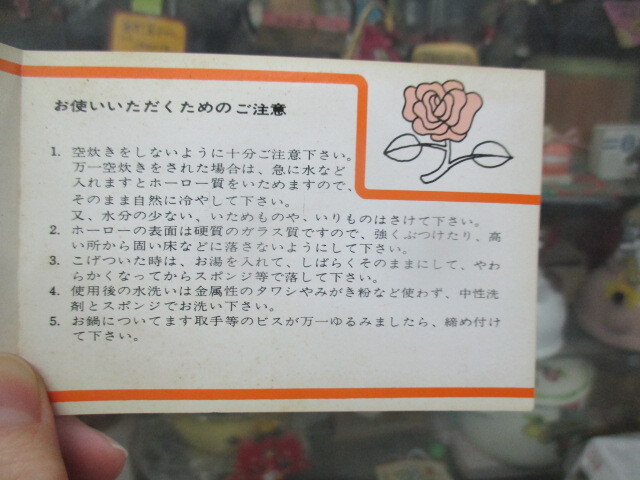 お使いいただくためのご注意
1. 空炊きをしないように十分ご注意下さい。
万一空炊きをされた場合は、急に水など
入れますとホーロー質をいためますので、
そのまま自然に冷やして下さい。
又、水分の少ない、いためものや、いりものはさけて下さい。
2. ホーローの表面は硬質のガラス質ですので、強くぶつけたり、高
い所から固い床などに落さないようにして下さい。
3. こげついた時は、お湯を入れて、しばらくそのままにして、やわ
らかくなってからスポンジ等で落して下さい。
4. 使用後の水洗いは金属性のタワシやみがき粉など使わず、中性洗
剤とスポンジでお洗い下さい。
5. お鍋についてます取手等のビスが万一ゆるみましたら、締め付け
て下さい。